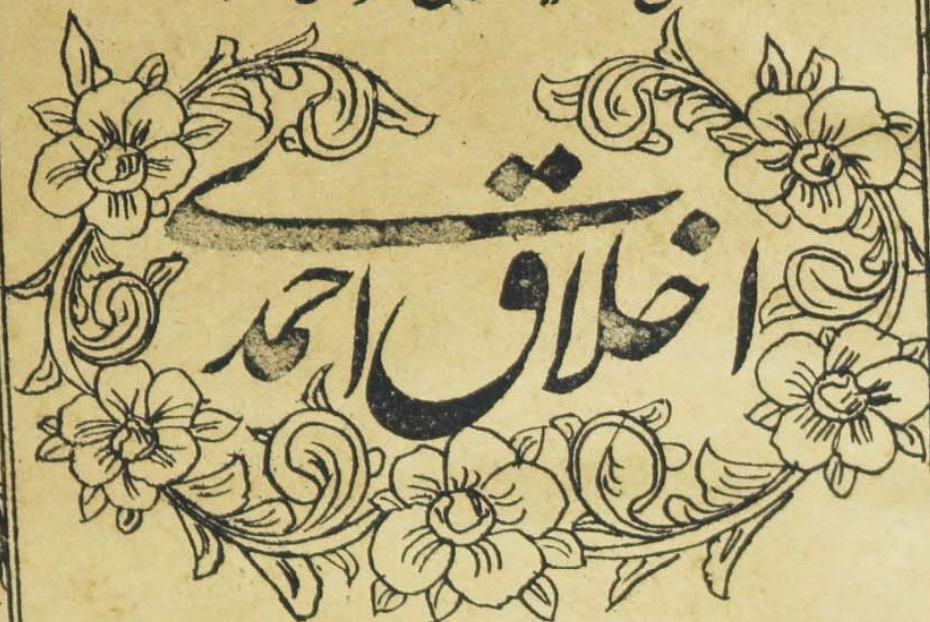 اخلاق احمدے